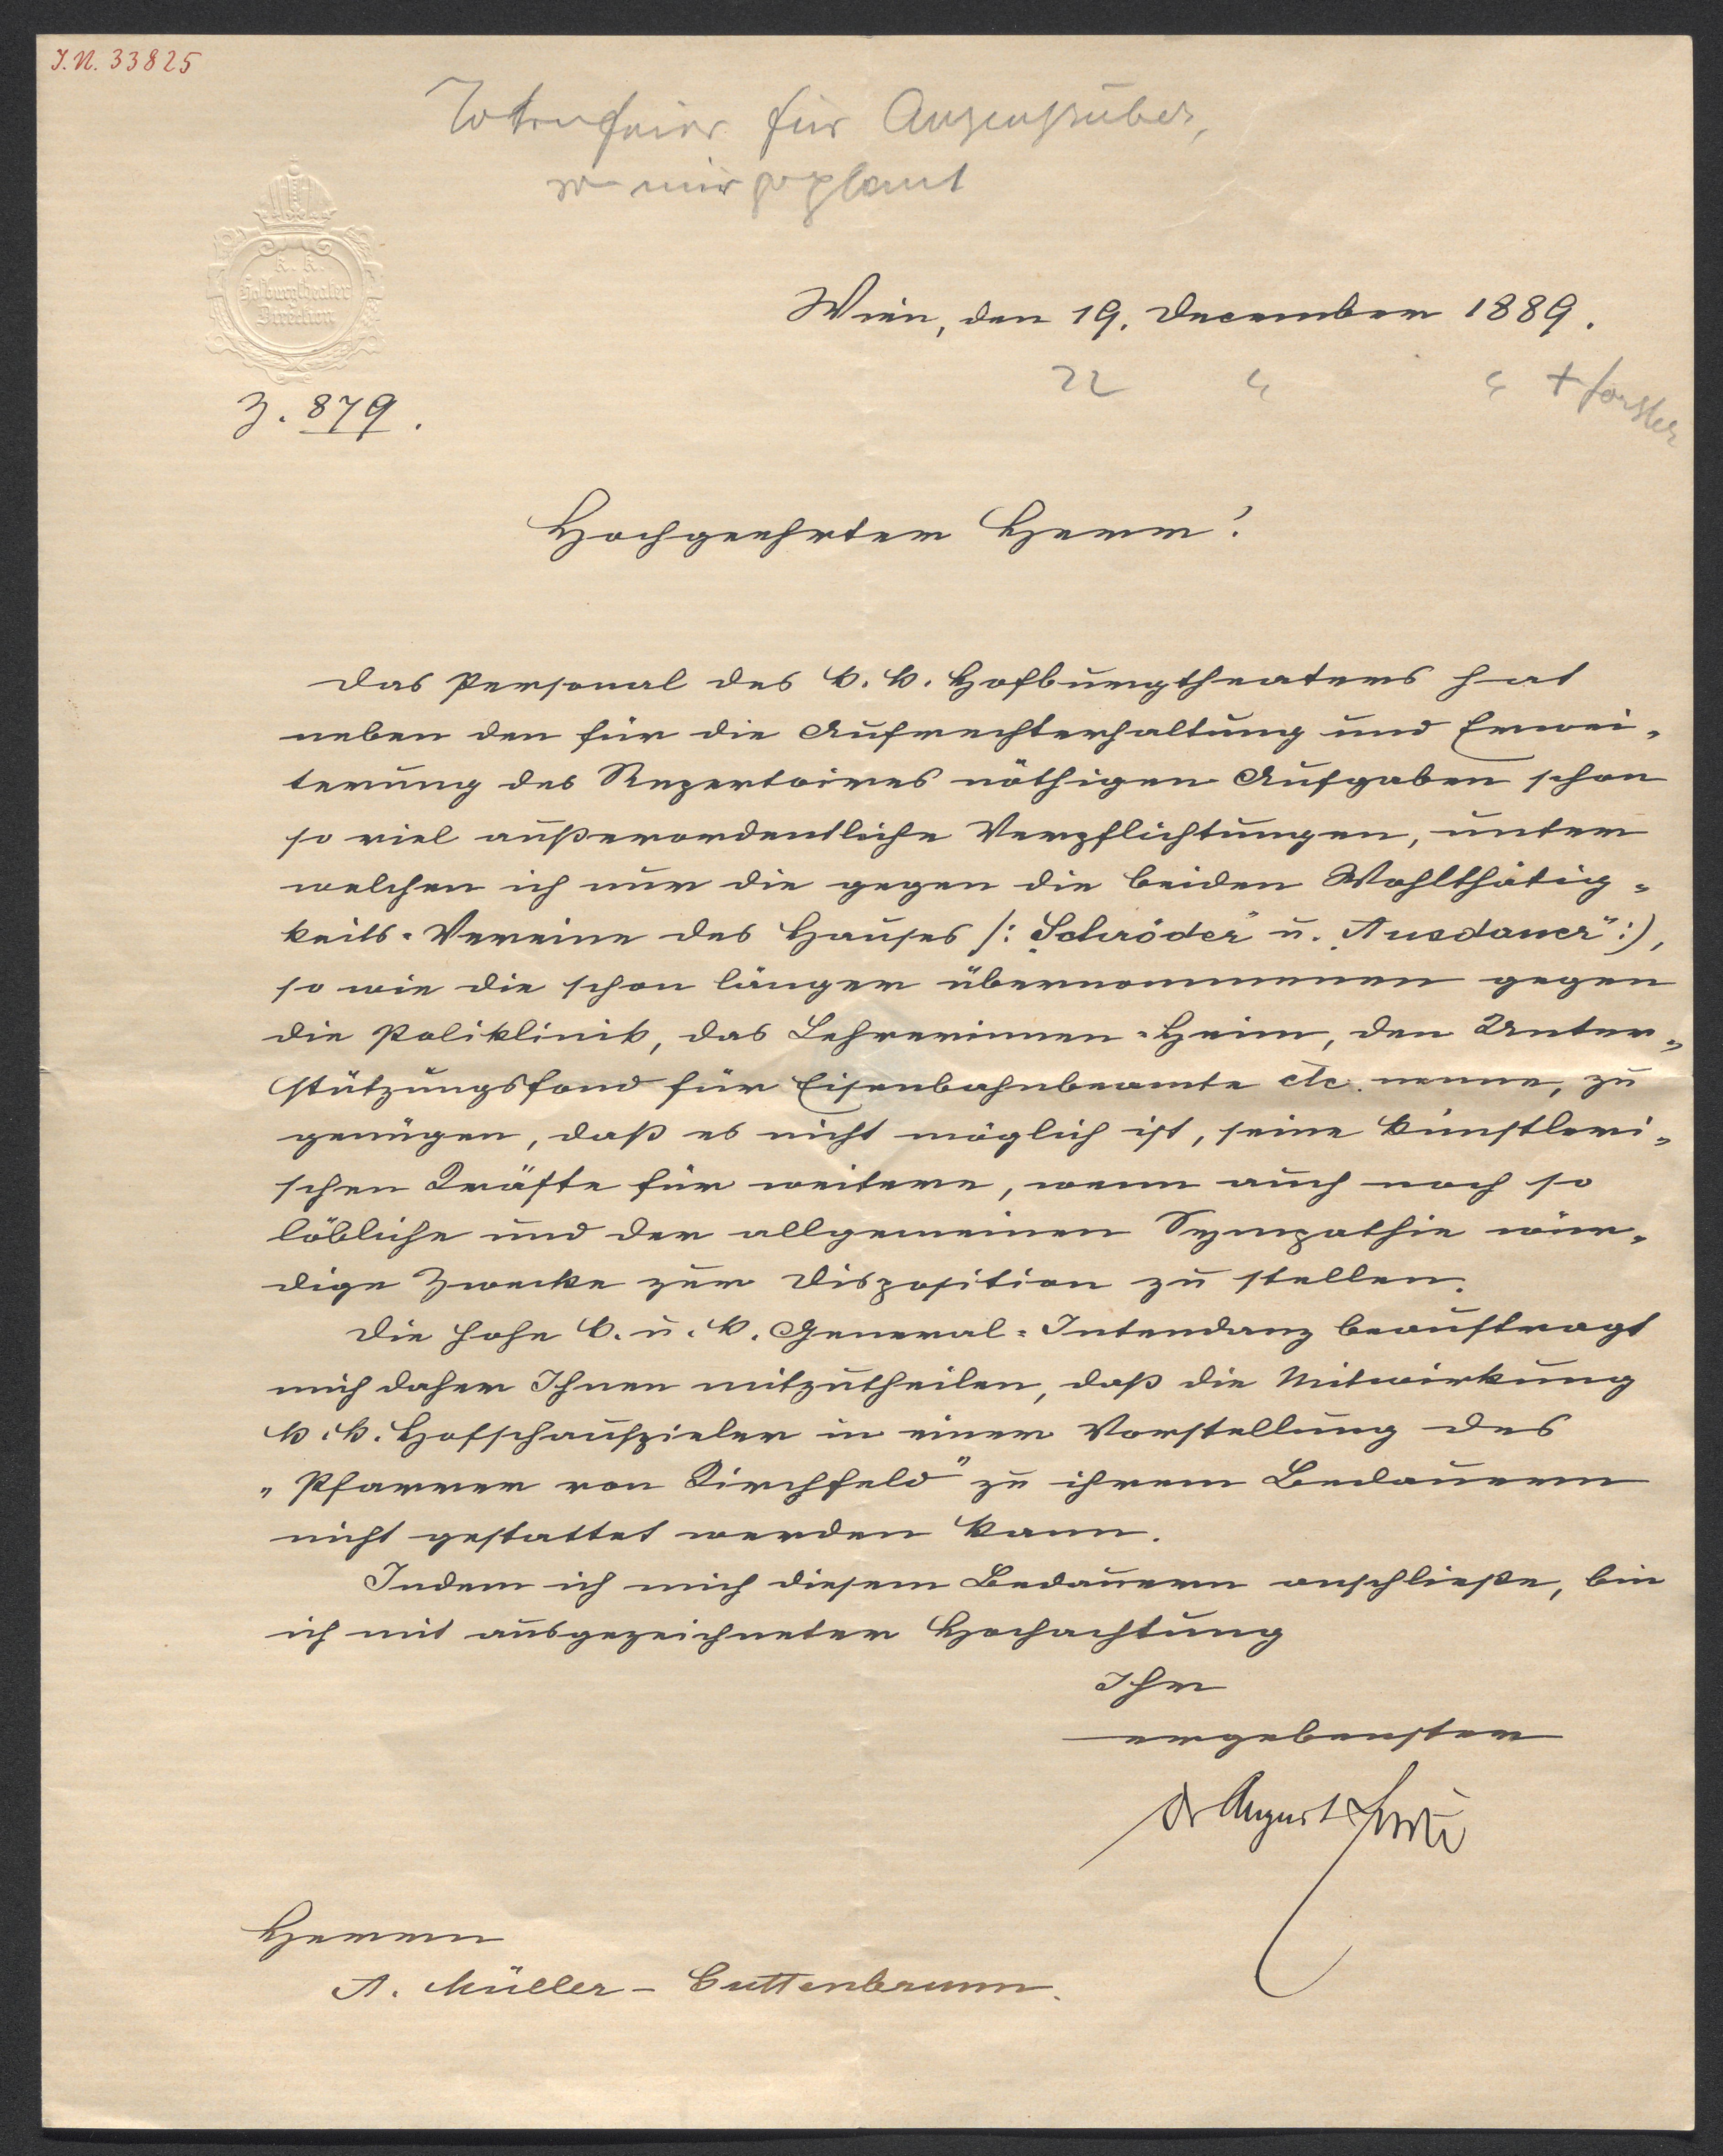 I.N. 33825
Totenfeier für Anzengruber,
von mir geplant
K. K.
Hofburgtheater
Direction
Wien, den 19. December 1889.
22 " " + Förster
Z. 879.
Hochgeehrter Herr!
Das Personal des k. k. Hofburgtheaters hat
neben den für die Aufrechterhaltung und Erwei-
terung des Repertoires nöthigen Aufgaben schon
so viel außerordentliche Verpflichtungen, unter
welchen ich nur die gegen die beiden Wohlthätig-
keits-Vereine des Hauses /: „Schröder" u. „Ausdauer" :/,
so wie die schon länger übernommenen gegen
die Poliklinik, das Lehrerinnen-Heim, den Unter-
stützungsfond für Eisenbahnbeamte etc. nenne, zu
genügen, daß es nicht möglich ist, seine künstleri-
schen Kräfte für weitere, wenn auch noch so
löbliche und der allgemeinen Sympathie wür-
dige Zwecke zur Disposition zu stellen.
Die hohe k. u. k. General-Intendanz beauftragt
mich daher Ihnen mitzutheilen, daß die Mitwirkung
k. k. Hofschauspieler in einer Vorstellung des
„Pfarrer von Kirchfeld" zu ihrem Bedauern
nicht gestattet werden kann.
Indem ich mich diesem Bedauern anschließe, bin
ich mit ausgezeichneter Hochachtung
Ihr
ergebenster
Dr August Förster
Herrn
A. Müller-Guttenbrunn.